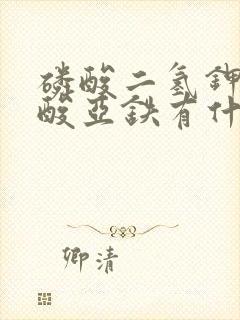 磷酸二氢钾
酸亚铁有什
卿清